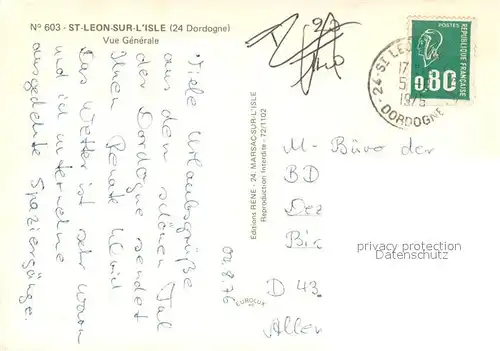 N° 603 - ST-LEON-SUR-L'ISLE (24 Dordogne)
Vue Générale
Viele Urlaubsgrüße
aus dem schönen Tal
der Dordogne sendet
Ihnen Renate
Das Wetter ist sehr warm
und ich unternehme
ausgedehnte Spaziergänge.
02.8.76
Editions RENE - 24. MARSAC-SUR-L'ISLE
Reproduction Interdite - 72/1102
EUROLUX
POSTES
REPUBLIQUE FRANÇAISE
0.80
24 ST LEON
17
1976
DORDOGNE
M-Büro der
BD
Dez
Bir
D 43
privacy protection
Datenschutz